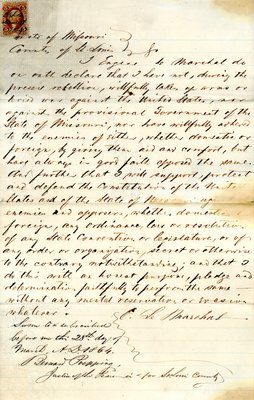 State of Missouri
County of St Louis
I Eugene C. Marshal do
on oath declare that I have not, during the
present rebellion, willfully taken up arms or
levied war against the United States, nor
against the provisional Government of the
State of Missouri, nor have willfully adhered
to the enemies of either, whether domestic or
foreign, by giving them aid and comfort, but
have always in good faith opposed the same.
And further that I will support, protect
and defend the Constitution of the United
States and of the State of Missouri
enemies and opposers, whether domestic
foreign, any ordinance, law or resolution
of any State Convention or Legislature, or of
any order or organization, secret or otherwise
to the contrary notwithstanding, and that I
do this with an honest purpose, pledge and
determination faithfully to perform the same
without any mental reservation or evasion
whatever.
Marshal
Sworn to & subscribed
before me this 28th day of
A.D. 1864.
Justice of the Peace in & for St Louis County